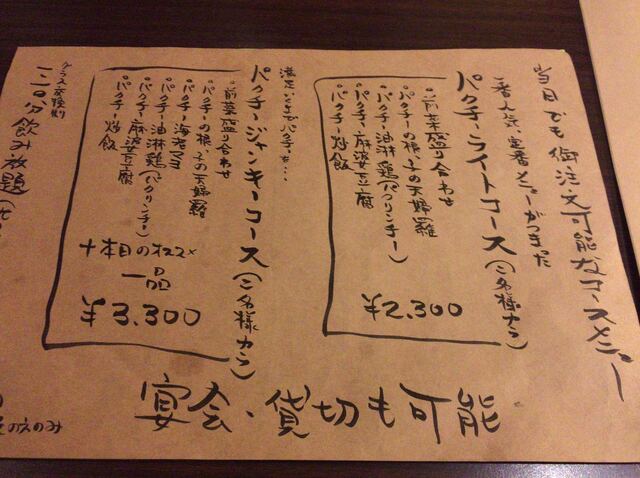 当日でも御注文可能なコースメニュー
一番人気、定番メニューがつまった
パクチーライトコース(二名様カラ)
・前菜盛り合わせ
・パクチーの根っ子の天婦羅
・パクチー油淋鶏(パクリンチー)
・パクチー麻婆豆腐
・パクチー炒飯
¥2.300
パクチージャンキーコース(二名様カラ)
・前菜盛り合わせ
・パクチーの根っ子の天婦羅
・パクチー海老マヨ
・パクチー油淋鶏(パクリンチー)
・パクチー麻婆豆腐
・パクチー炒飯
+本日のオススメ
一品
¥3.300
グラス交換制
一二〇分飲み放題
宴会・貸切も可能